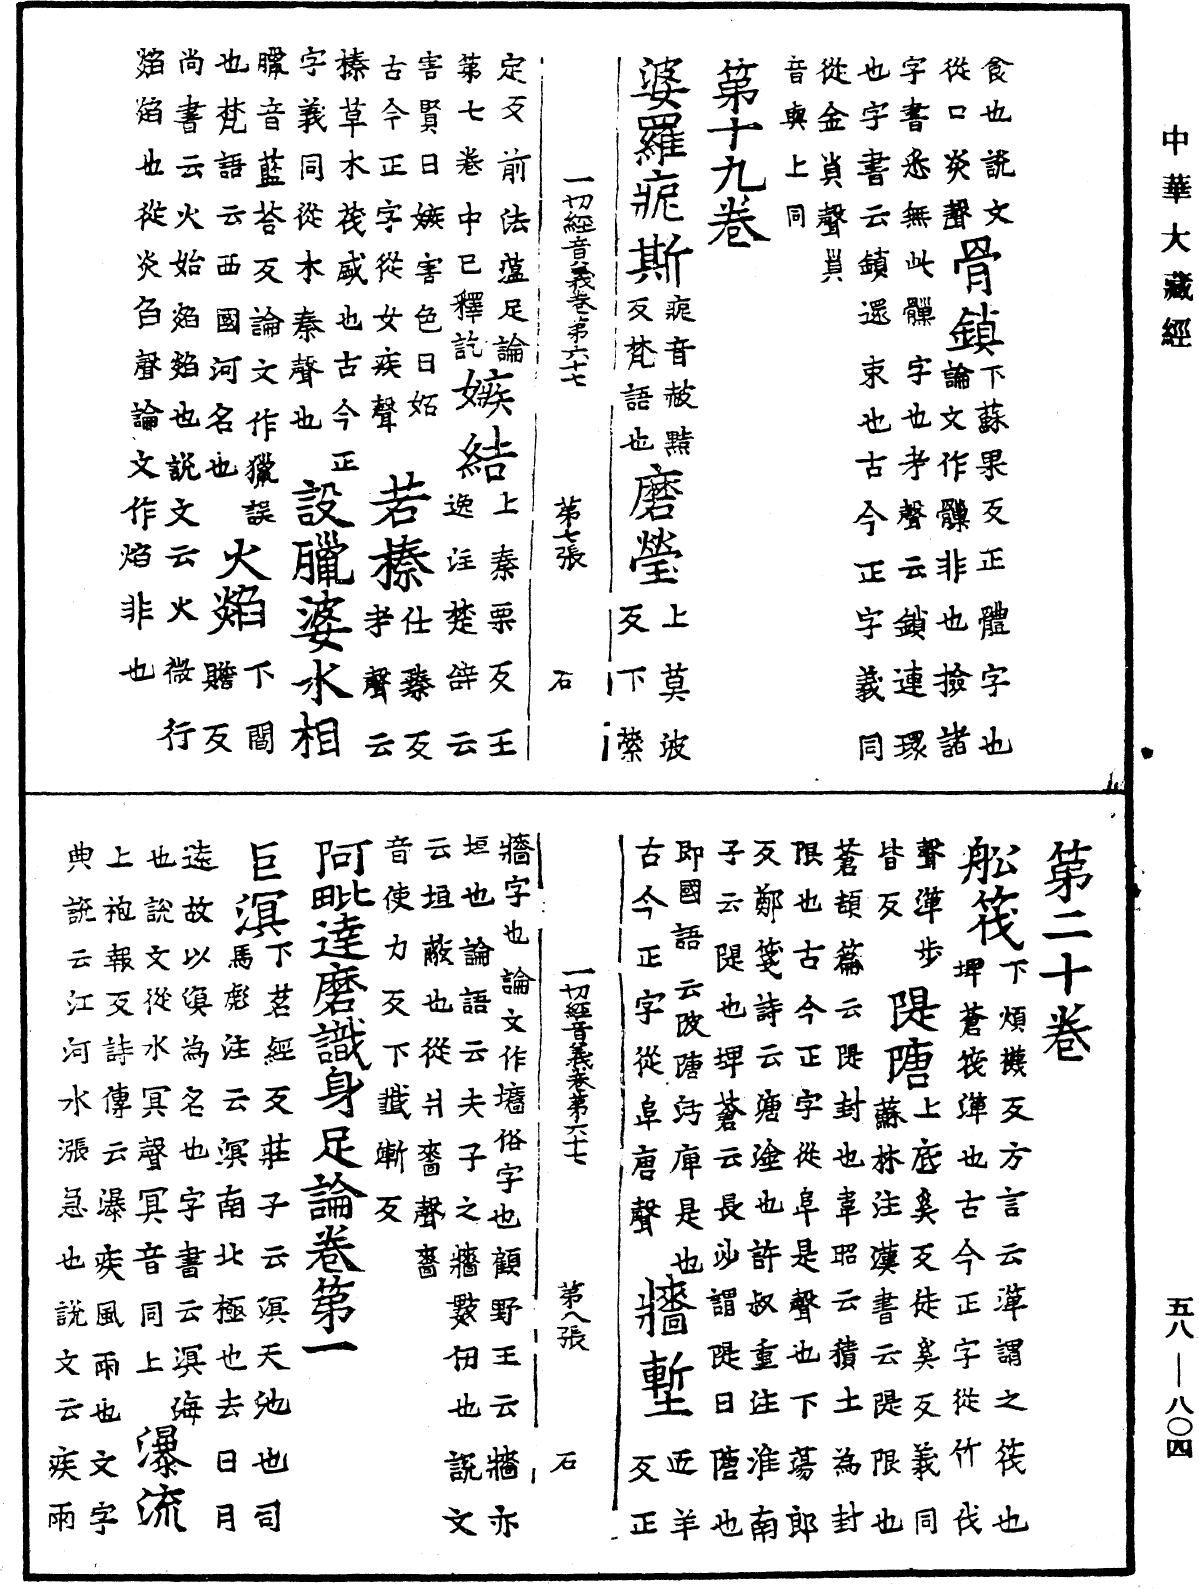 中華大藏經
食也說文
從口炎聲
骨鎖
下蘇果反正體字也
論文作䯝非也撿諸
字書悉無此䯝字也考聲云鎖連環
也字書云鎖還束也古今正字義同
從金𧴪聲𧴪
音與上同
第十九卷
婆羅痆斯
痆音赧黠
反梵語也
磨瑩
上莫波
反下縈
一切經音義卷第六十七 第七張 石
定反前法蘊足論
第七卷中已釋訖
嫉結
上秦栗反王
逸注楚辭云
害賢曰嫉害色曰妬
古今正字從女疾聲
若榛
仕臻反
考聲云
榛草木茂盛也古今正
字義同從木秦聲也
設臘婆水相
臘音藍荅反論文作獵誤
也梵語云西國河名也
火焰
下閻
贍反
尚書云火始焰焰也說文云火微行
焰焰也從炎臽聲論文作焰非也
第二十卷
舩筏
下煩襪反方言云箄謂之筏也
埤蒼筏箄也古今正字從竹伐
聲箄步
皆反
隄隚
上底奚反徒奚反義同
蘇林注漢書云隄限也
蒼頡篇云隄封也韋昭云積土為封
限也古今正字從阜是聲也下蕩郎
反鄭箋詩云溏塗也許叔重注淮南
子云隄也埤蒼云長沙謂隄曰隚也
即國語云陂隚汚庳是也
古今正字從阜唐聲
牆塹
近羊
反正
一切經音義卷第六十七 第八張 石
牆字也論文作墻俗字也顧野王云牆亦
垣也論語云夫子之牆數仞也說文
云垣蔽也從爿嗇聲嗇
音使力反下韱塹反
阿毗達磨識身足論卷第一
巨溟
下茗經反莊子云溟天池也司
馬彪注云溟南北極也去日月
遠故以溟為名也字書云溟海
也說文從水冥聲冥音同上
瀑流
上袍報反詩傳云瀑疾風雨也文字
典說云江河水漲急也說文云疾雨
五八—八〇四